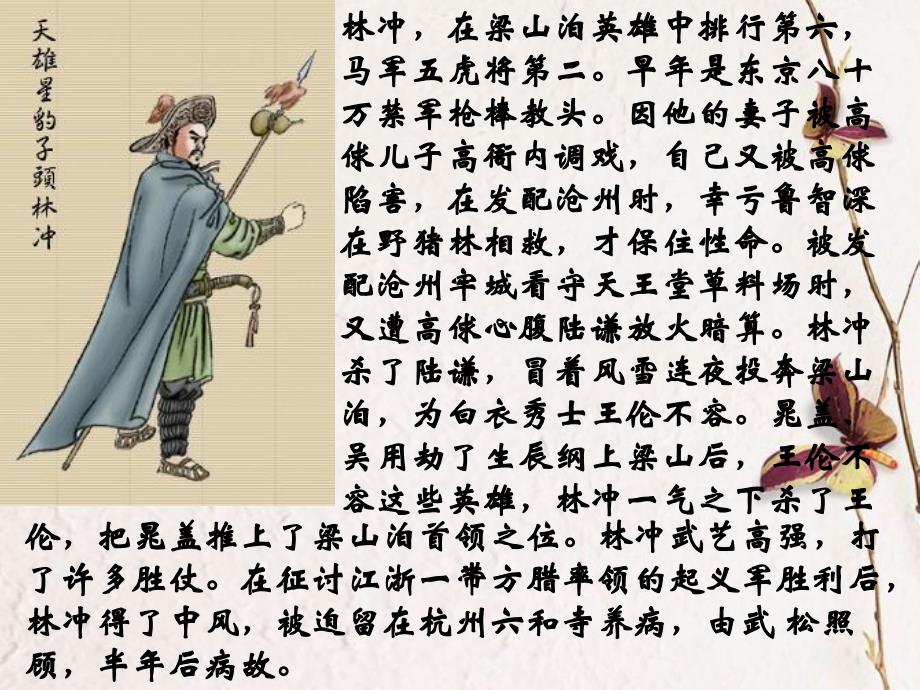 天雄星豹子頭林冲
林冲，在梁山泊英雄中排行第六，
马军五虎将第二。早年是东京八十
万禁军枪棒教头。因他的妻子被高
俅儿子高衙内调戏，自己又被高俅
陷害，在发配沧州时，幸亏鲁智深
在野猪林相救，才保住性命。被发
配沧州牢城看守天王堂草料场时，
又遭高俅心腹陆谦放火暗算。林冲
杀了陆谦，冒着风雪连夜投奔梁山
泊，为白衣秀士王伦不容。晁盖、
吴用劫了生辰纲上梁山后，王伦不
容这些英雄，林冲一气之下杀了王
伦，把晁盖推上了梁山泊首领之位。林冲武艺高强，打
了许多胜仗。在征讨江浙一带方腊率领的起义军胜利后，
林冲得了中风，被迫留在杭州六和寺养病，由武 松照
顾，半年后病故。